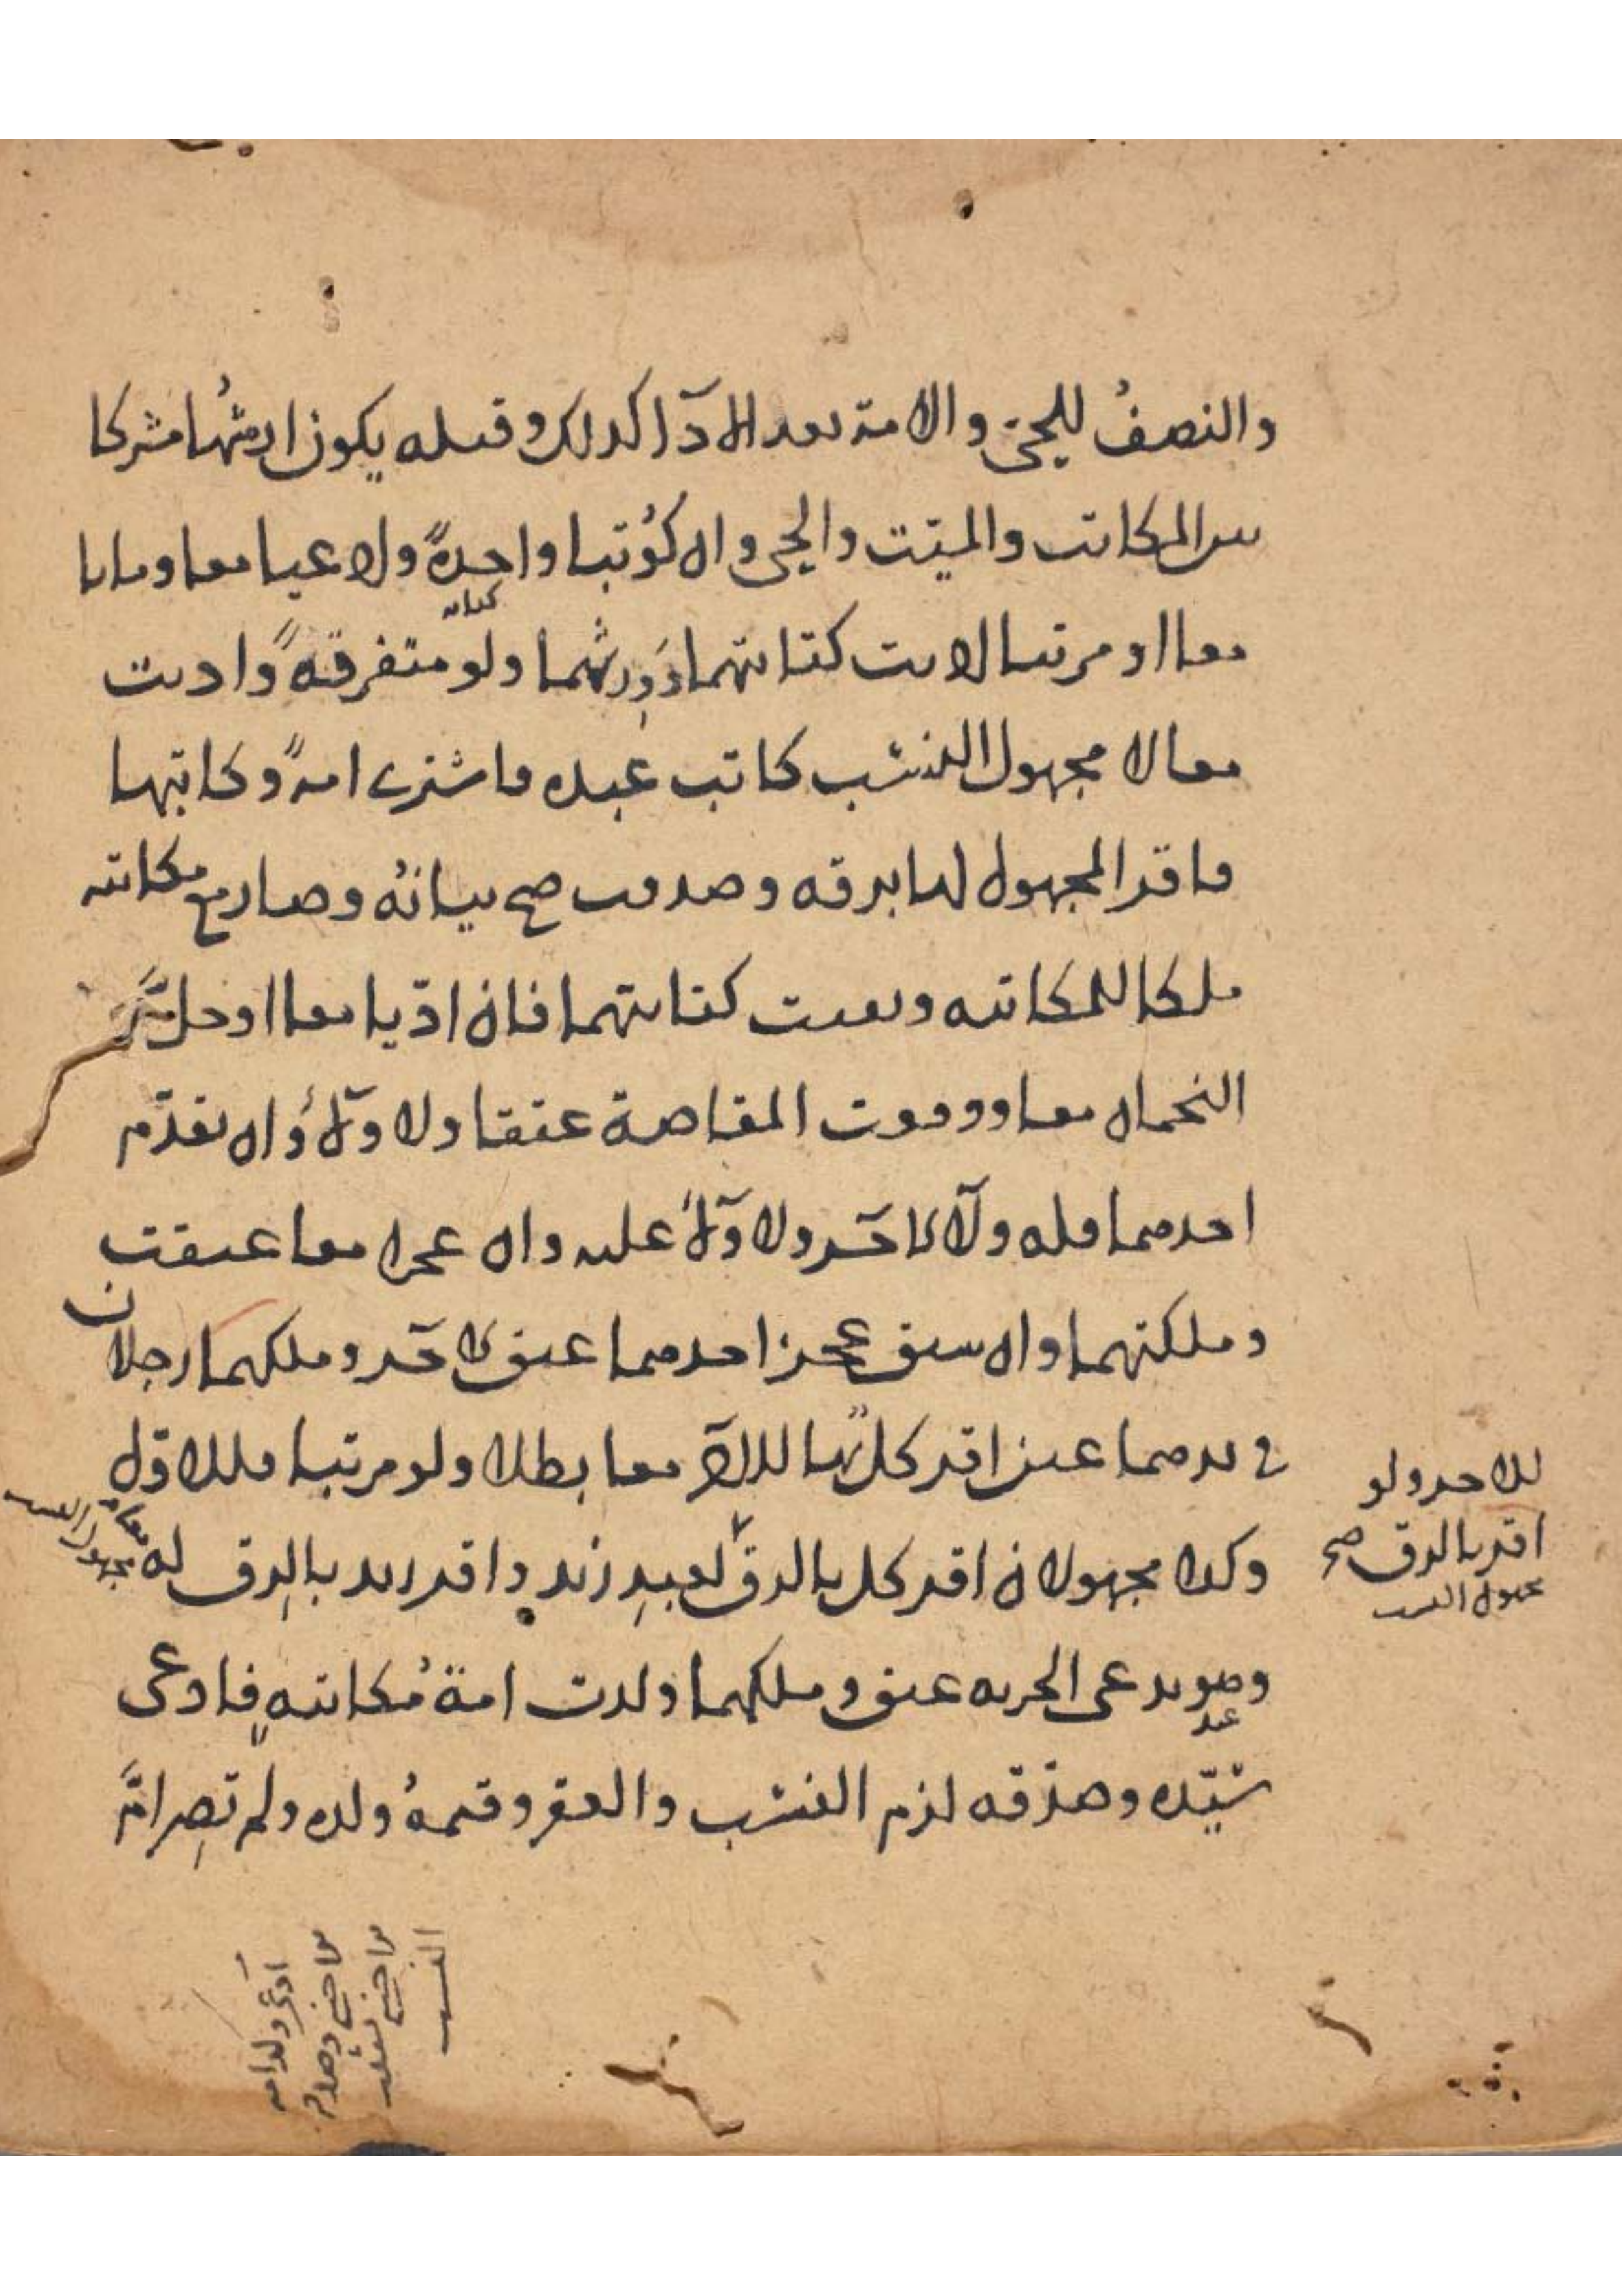 والنصفُ للحيّ والامة بعد الادآ كذلك وقبله يكون ارشُها مشركا
بين المكاتب والميّت والحي وان كُوتبا واحدةً ولا عيا معا وماتا
معا او مرتبا لا يت كتابتهما ولو متفرقةً وادت
كتابه
معا لا مجهول النسب كاتب عبده فاشترى امةً وكاتبها
فاقر المجهول لها برقه وصدقت صح بيانهُ وصار مع مكاتبه
ملكا للمكاتبه وبقيت كتابتهما فان ادّيا معا او حلّ
النجمان معا ووقعت المقاصة عتقا ولا ولآءَ وان تقدّم
احدهما فله ولآ الاخر ولا ولآءَ عليه وان عجزا معا عتقت
وملكتهما وان سبق عجز احدهما عتق الاخر وملكهما رجلان
في يدهما عبد اقر كلٌّ بهما للاخر معا بطلا ولو مرتبا فللاوّل
وكذا مجهولان اقر كل بالرق لعبدِ زيد واقر زيد بالرق له
مجهول النسب
وهو يدعى الحريه عتق وملكهما ولدت امة مُكاتبه فادعى
عبد
سيّده وصدّقه لزم النسب والعقر وقيمةُ ولده ولم تصِر امَّ
للاخر ولو
اقر بالرق صح
مجهول النسب
ادعى ولد امه
من اجنبي وصدقه
من اجنبي
النسب